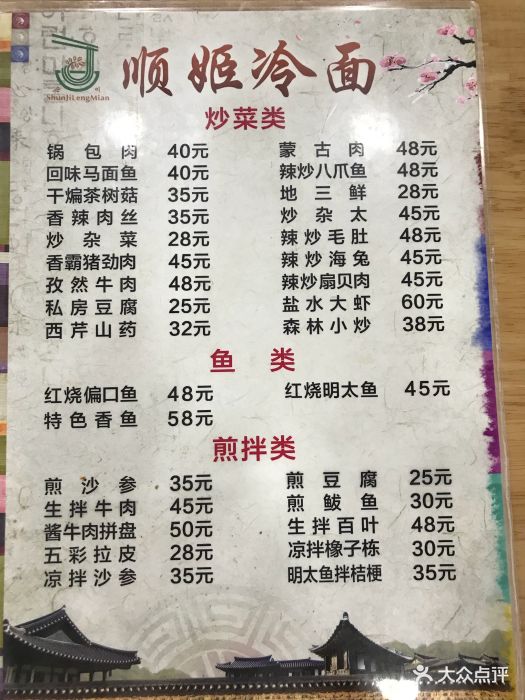 ShunJiLengMian
顺姬冷面
炒菜类
锅包肉 40元 蒙古肉 48元
回味马面鱼 40元 辣炒八爪鱼 48元
干煸茶树菇 35元 地三鲜 28元
香辣肉丝 35元 炒杂太 45元
炒杂菜 28元 辣炒毛肚 48元
香霸猪劲肉 45元 辣炒海兔 45元
孜然牛肉 48元 辣炒扇贝肉 45元
私房豆腐 25元 盐水大虾 60元
西芹山药 32元 森林小炒 38元
鱼类
红烧偏口鱼 48元 红烧明太鱼 45元
特色香鱼 58元
煎拌类
煎沙参 35元 煎豆腐 25元
生拌牛肉 45元 煎鲅鱼 30元
酱牛肉拼盘 50元 生拌百叶 48元
五彩拉皮 28元 凉拌橡子栋 30元
凉拌沙参 35元 明太鱼拌桔梗 35元
大众点评